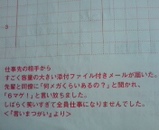 仕事先の相手から
すごく容量の大きい添付ファイル付きメールが届いた。
先輩と同僚に「何メガくらいあるの?」と聞かれ、
「6マゲ!」と言い放ちました。
しばらく笑いすぎて全員仕事になりませんでした。
<『言いまつがい』より>